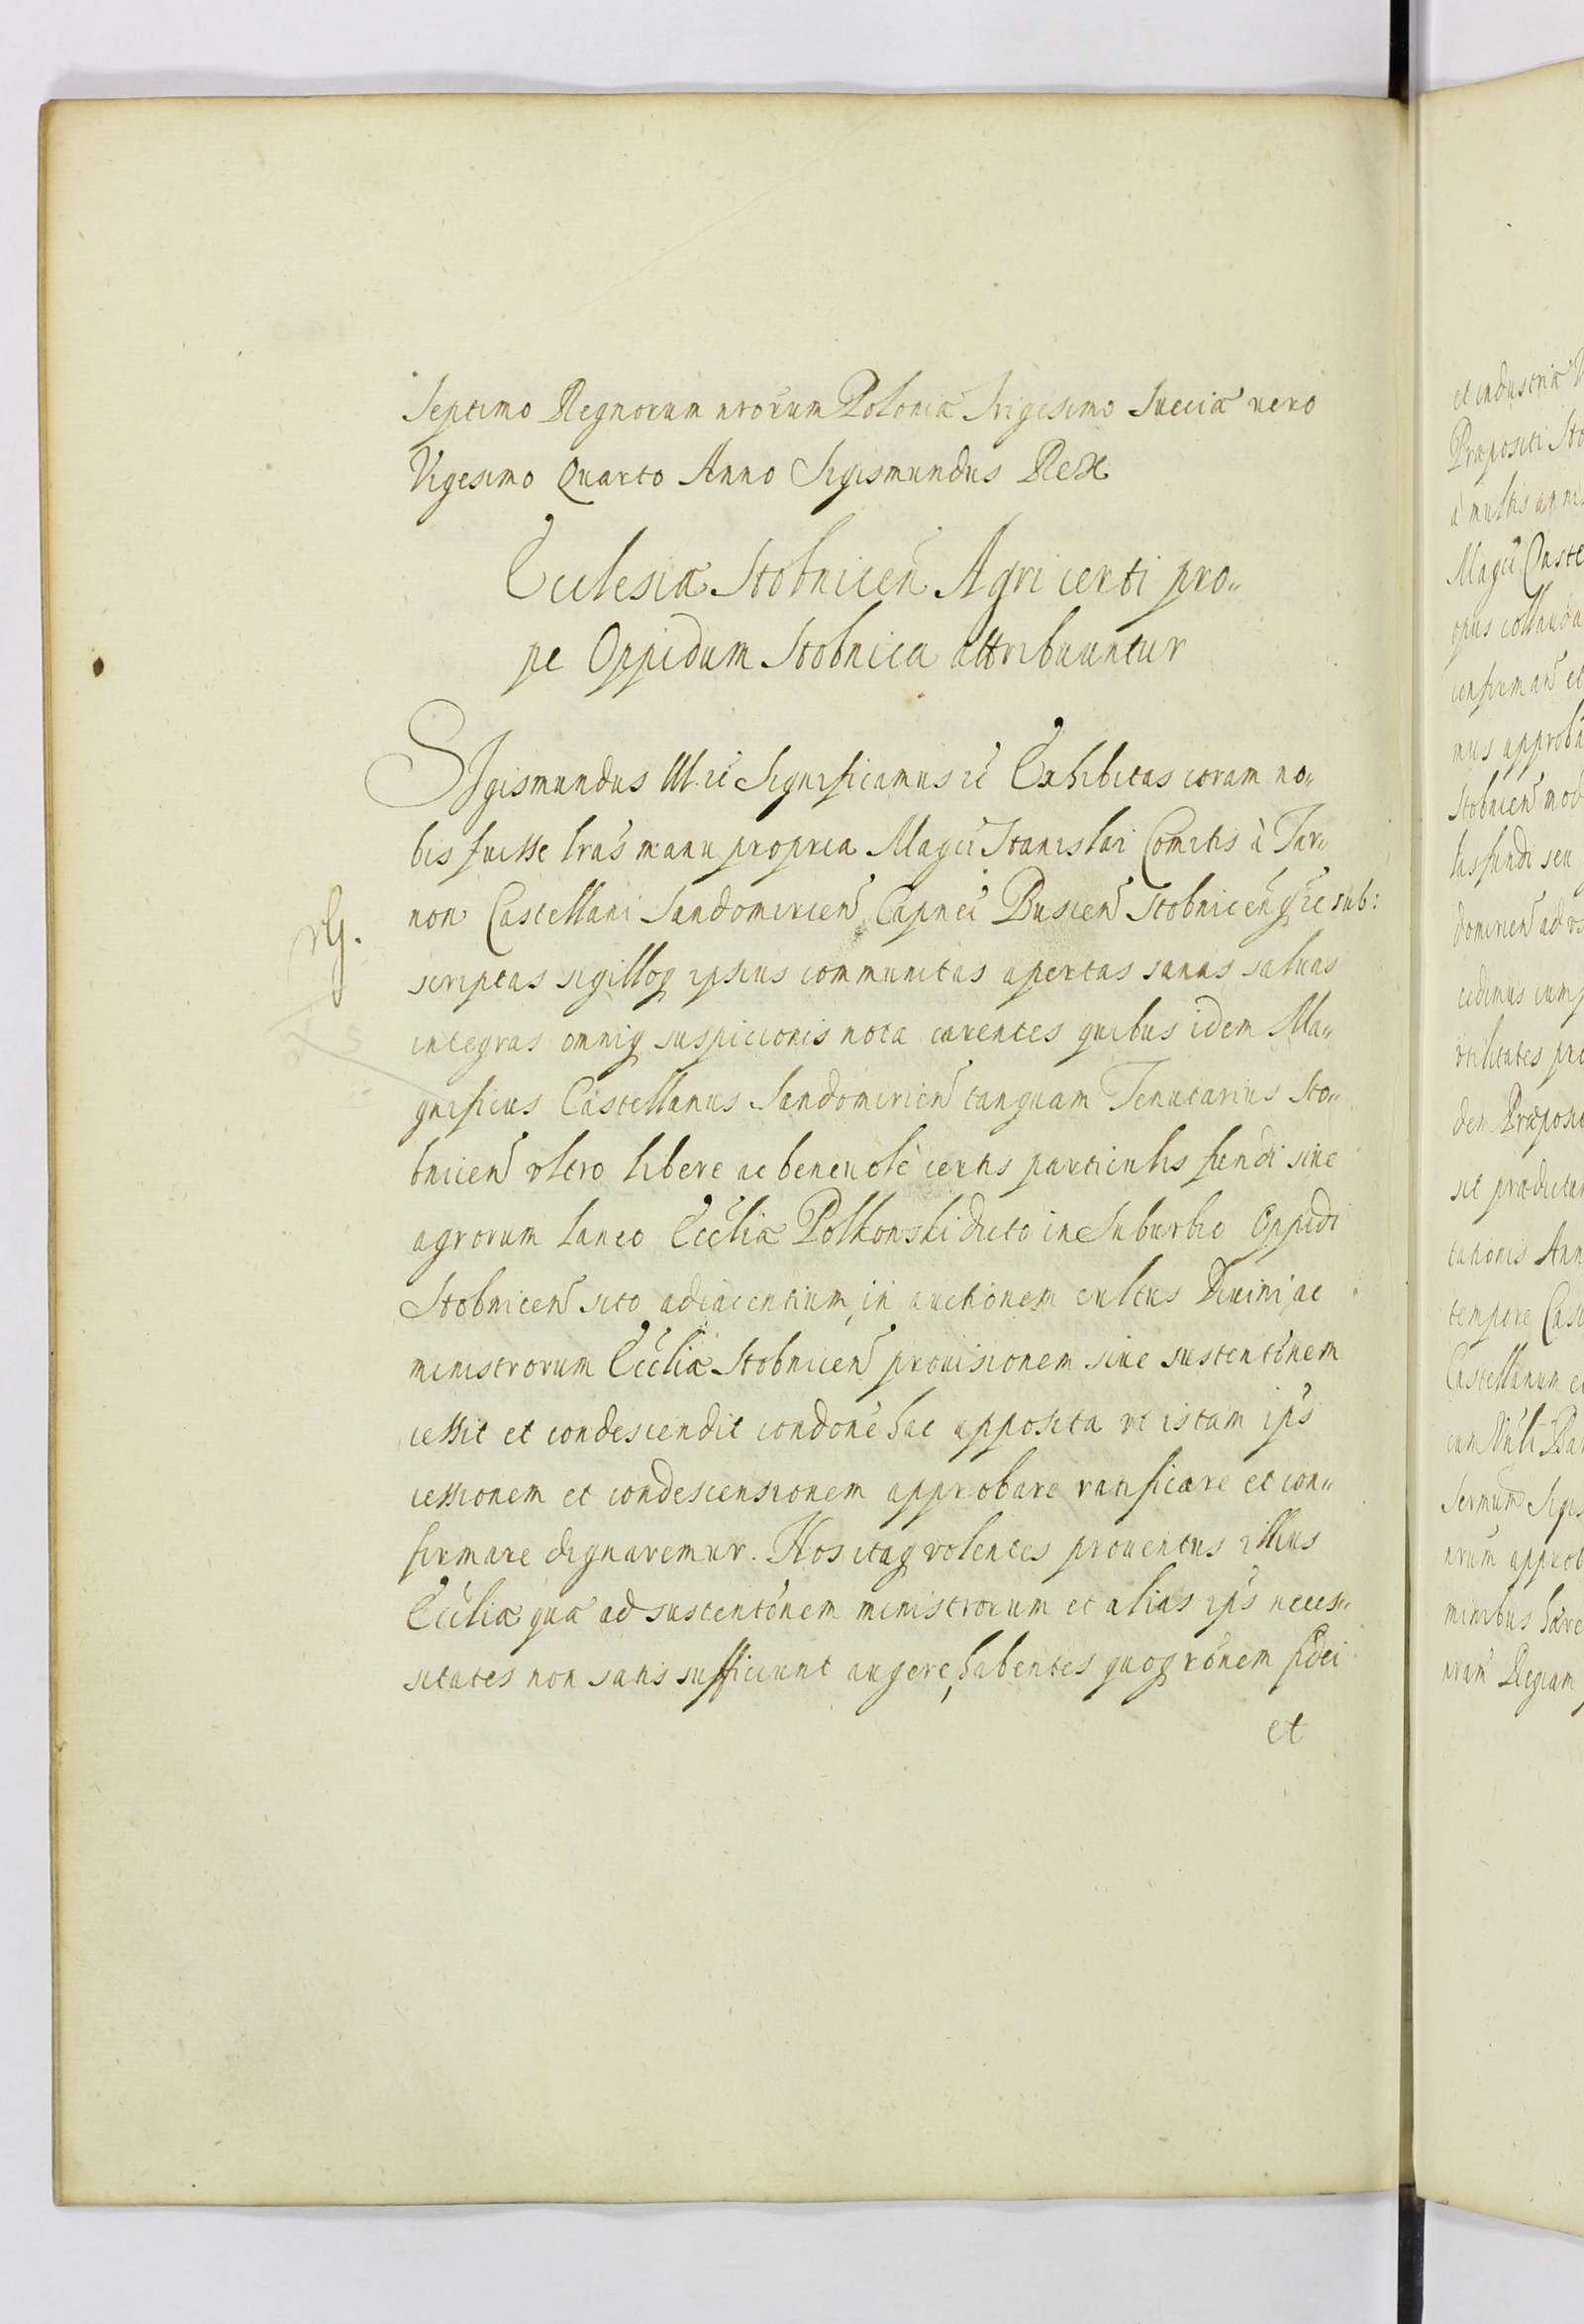 Septimo Regnorum nrõrum Poloniæ Trigesimo Sueciæ vero
Vigesimo Quarto Anno Sigismundus Rex
Ecclesiæ Stobnicen̄ Agri certi pro„
pe Oppidum Stobnica attribuuntur
SIgismundus III. ec̃ Significamus ec̃ Exhibitas coram no„
bis fuisse lrãs manu propria Magci Stanislai Comitis à Tar„
now Castellani Sandomirien̄ Capnei Buscen̄ Stobnicenq̃ ec̃ sub:
scriptas sigilloq ipsius communitas apertas sanas saluas
integras omniq suspicionis nota carentes quibus idem Ma„
gnificus Castellanus Sandomirien̄ tanquam Tenutarius Sto„
bnicen̄ vltro libere ac beneuole certis particulis fundi siue
agrorum laneo Eccliæ Polkonski dicto in Suburbio Oppidi
Stobnicen̄ sito adiacentium, in auctionem cultus Diuini ac
ministrorum Eccliæ Stobnicen̄ prouisionem siue sustentõnem
cessit et condescendit condõne hac apposita vt istam ips̃
cessionem et condescensionem approbare ratificare et con„
firmare dignaremur. Nos itaq volentes prouentus illius
Eccliæ quæ ad sustentõnem ministrorum et alias ips̃ neces„
sitates non satis sufficiunt augere, habentes quoq rõnem fidei
et
rG.
et industriæ
Præpositi Sto
à multis anni
Magci Caste
opus collauda
confirman̄ et
mus approba
Stobnicen̄ mod
lis fundi seu
domirien̄ ad
cedimus cum
vtilitates pro
dem Præposi
sit prædictu
tationis Ann
tempore Cast
Castellanum
cum Nuli Bar
Sermum Sigis
nrum approb
minibus hære
nram Regiam